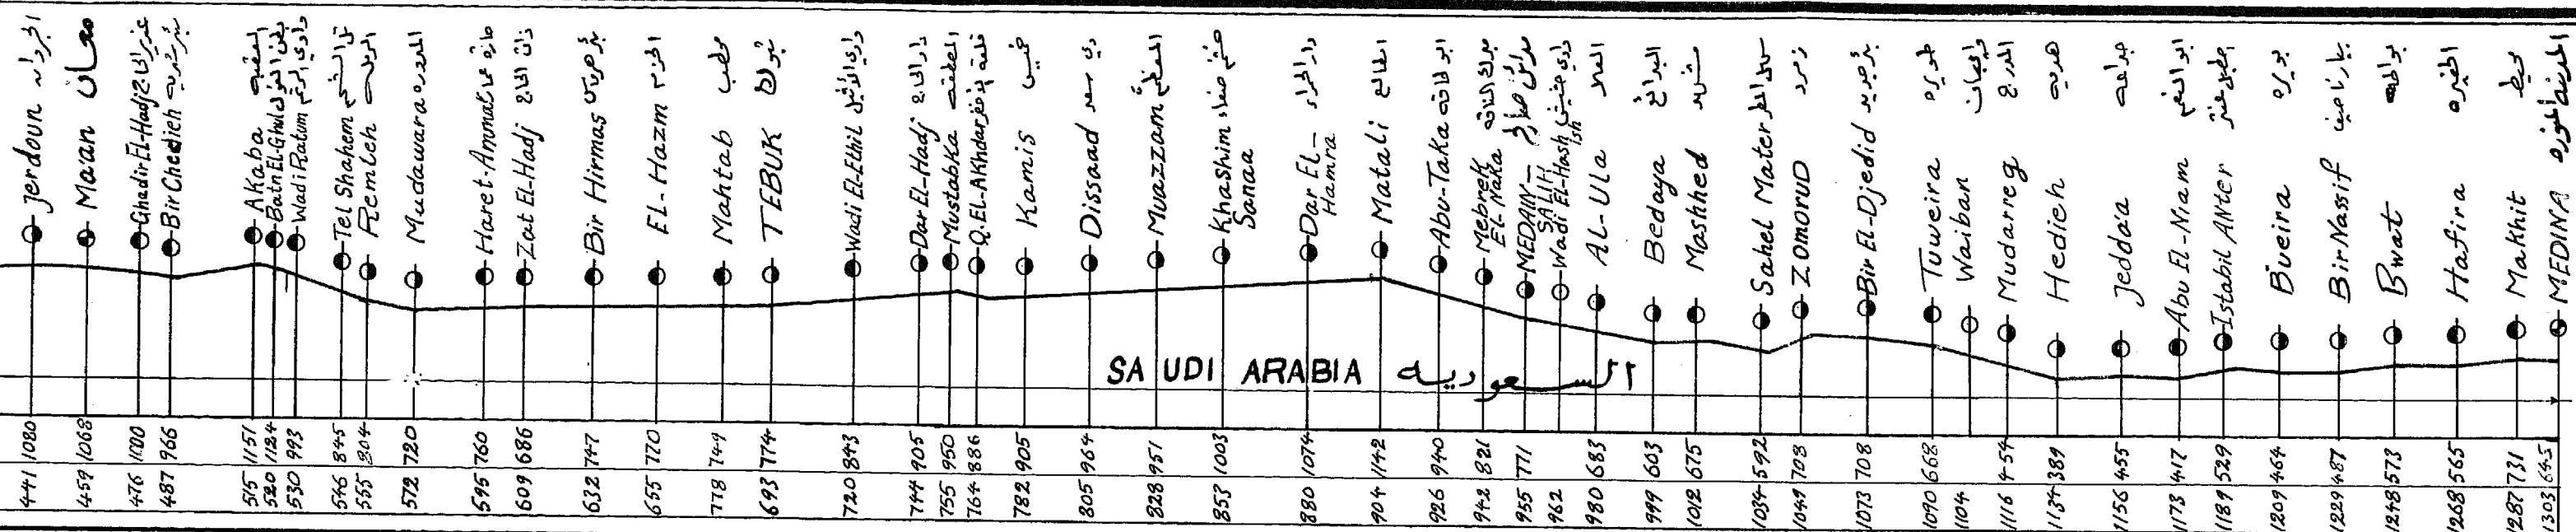 Jerdoun الجردانه
Ma'an معان
Ghadir-El-Hadj غدير الحاج
Bir Chedieh
Akaba العقبه
Batn El-Ghul بطن الغول
Wadi Ratum وادي الرتم
Tel Shahem تل الشحم
Remleh الرمله
Mudawara المدوره
Haret-Ammat
Zat El-Hadj ذات الحاج
Bir Hirmas بئر هرماس
EL-Hazm الحزم
Mahtab محطب
TEBUK تبوك
Wadi El-Ethil وادي الأثيل
Dar El-Hadj دار الحاج
Mustabka
Q.El-Akhdar
Kamis خميس
Dissaad
Muazzam المعظم
Khashim
Sanaa خشم صنعاء
Dar El-
Hamra دار الحمراء
Matali المطالع
Abu-Taka ابو طاقه
Mebrek
El-Naka مبرك الناقه
MEDAIN-
SALIH مدائن صالح
Wadi El-Hash
ish وادي حشيش
AL-Ula العلا
Bedaya البدائع
Mashhed مشهد
Sahel Mater سهل المطر
ZOMORUD زمرد
Bir El-Djedid بئر جديد
Tuweira طويره
Waiban
Mudarreg المدرج
Hedieh هديه
Jedda'a جداعه
Abu El-Niam ابو النعم
Istabil ANter اصطبل عنتر
Bueira بويره
Bir Nassif بيار ناصيف
Bwat بواط
Hafira الحفيره
Makhit محيط
MEDINA المدينه المنوره
SAUDI ARABIA السعوديه
1080 1068 1100 966 1151 1124 993 845 804 720 760 686 747 770 749 774 843 905 950 886 905 964 951 1003 1074 1142 940 821 771 683 603 675 592 708 708 668 454 389 455 417 529 464 487 573 565 731 645
441 459 476 487 515 520 530 546 555 572 595 609 632 655 778 693 720 744 755 764 782 805 828 853 880 904 926 942 955 962 980 999 1012 1034 1049 1073 1090 1104 1116 1134 1156 1173 1189 1209 1229 1248 1268 1287 1303